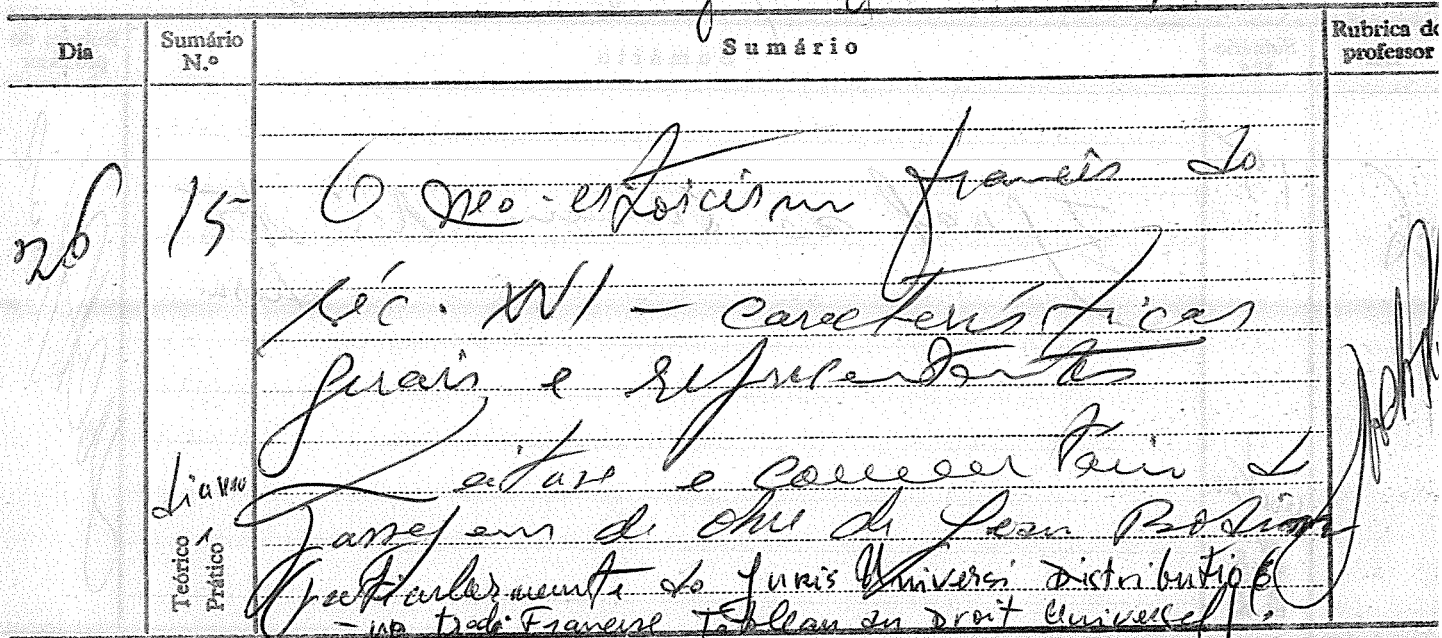 Dia Sumário N.º Sumário Rubrica do professor
26 15 O neo-estoicismo francês do
séc. XVI - características
gerais e representantes
Leitura e comentário de
passagens da obra de Jean Bodin
Teórico Prático
(particularmente do Juris Universi Distributio
- na trad. Francesa Tableau du Droit Universel).